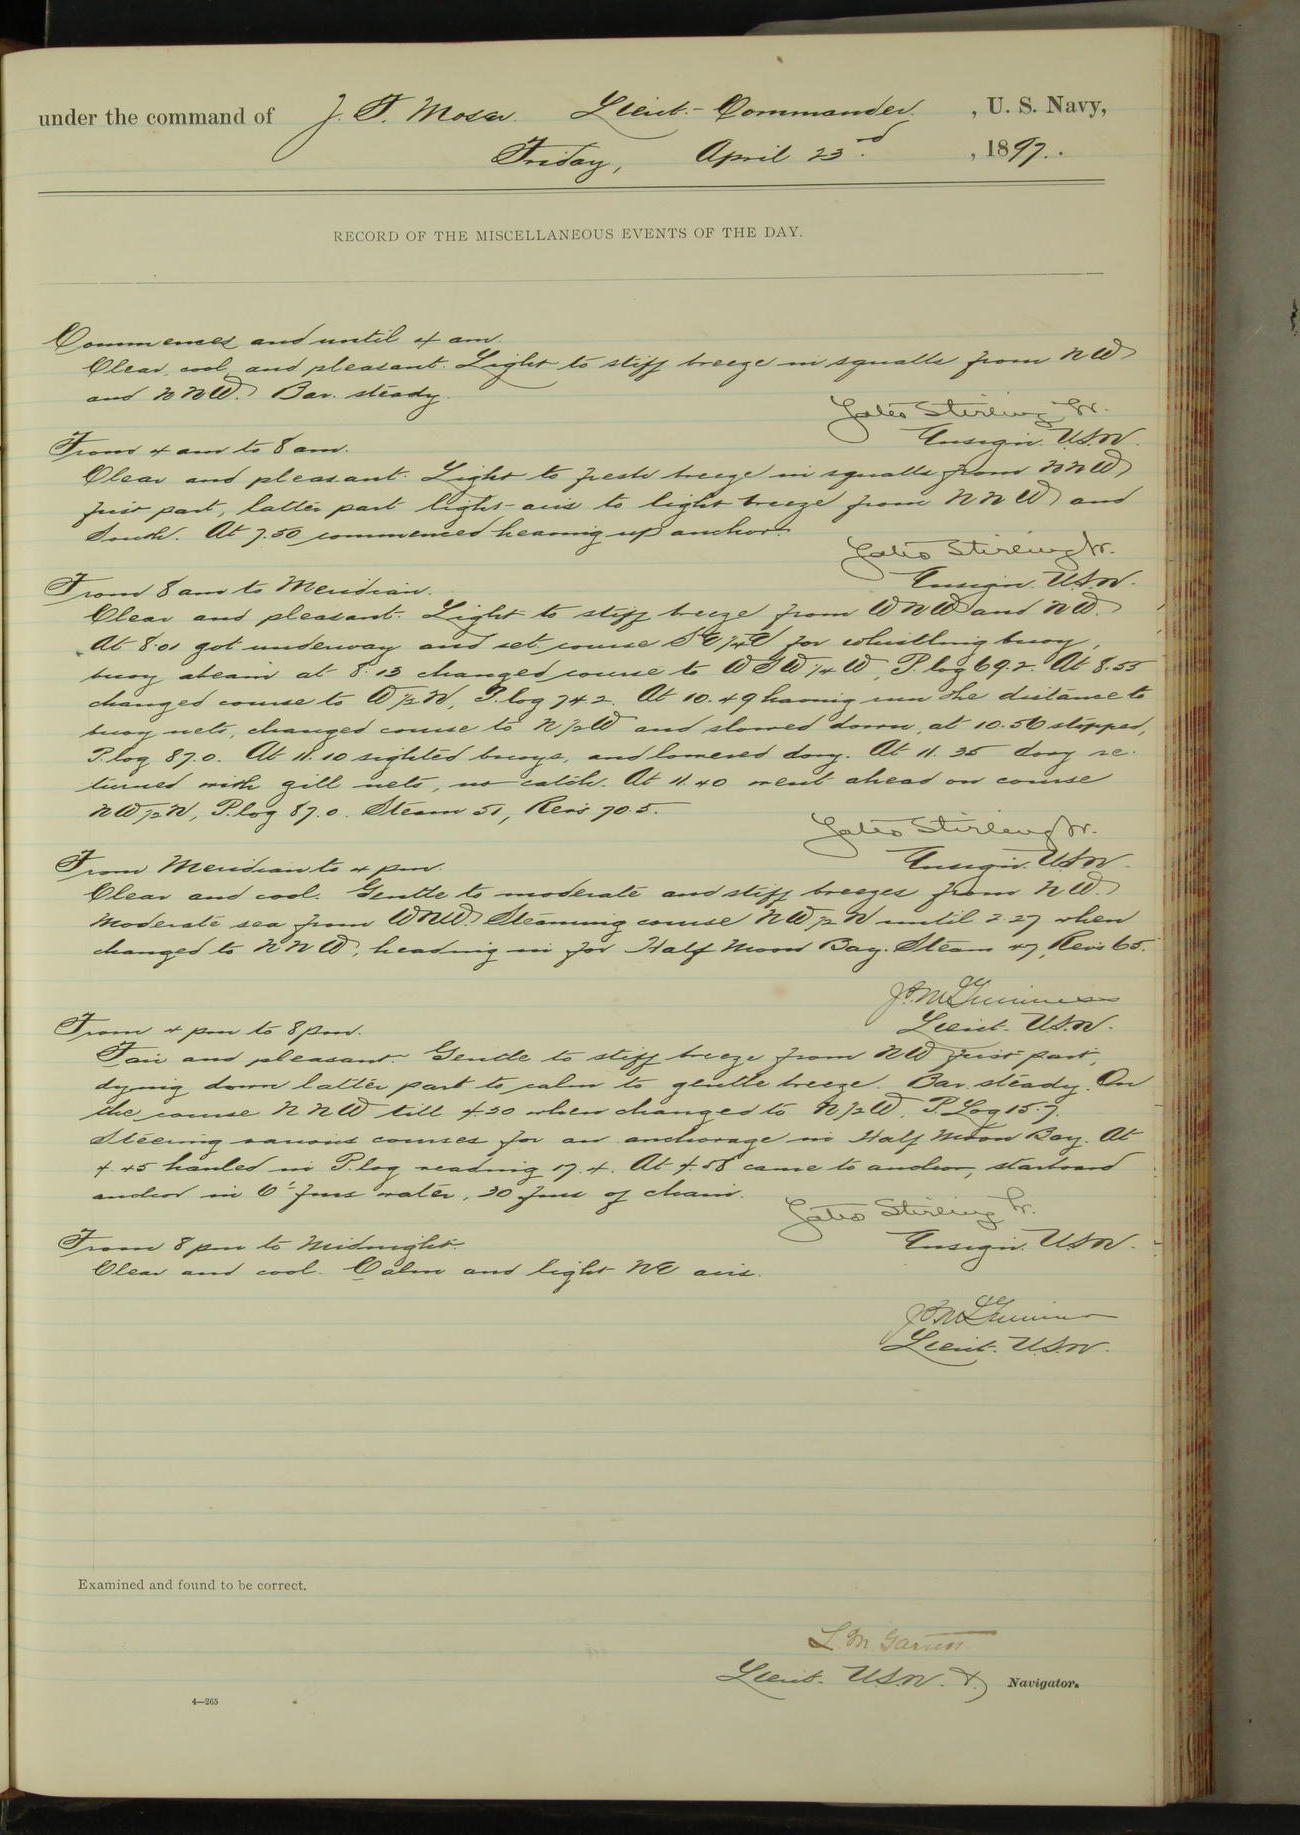 under the command of J. F. Moser Lieut-Commander, U. S. Navy,
Friday, April 23rd, 1897.
RECORD OF THE MISCELLANEOUS EVENTS OF THE DAY.
Commences and until 4 am
Clear, cool and pleasant. Light to stiff breeze in squalls from NW
and NNW. Bar. steady.
Yates Stirling Jr.
Ensign. U.S.N.
From 4 am to 8 am.
Clear and pleasant. Light to fresh breeze in squalls from NNW
first part, latter part light airs to light breeze from NNW and
South. At 7.50 commenced heaving up anchor.
Yates Stirling Jr.
Ensign. U.S.N.
From 8 am to Meridian.
Clear and pleasant. Light to stiff breeze from WNW and NW.
At 8.01 got underway and set course for whistling buoy,
buoy abeam at 8.13 changed course to WSW 1/4 W, P. log 69.2. At 8.55
changed course to W 1/2 N, P. log 74.2. At 10.49 having run the distance to
buoy nets, changed course to N 1/2 W and slowed down, at 10.56 stopped,
P. log 87.0. At 11.10 sighted buoys, and lowered dory. At 11.35 dory re-
turned with gill nets, no catch. At 11.40 went ahead on course
NW 1/2 N, P. log 87.0. Steam 51, Revs 70.5.
Yates Stirling Jr.
Ensign. U.S.N.
From Meridian to 4 pm.
Clear and cool. Gentle to moderate and stiff breezes from NW.
Moderate sea from WNW. Steaming course NW 1/2 N until 2.27 when
changed to NNW, heading in for Half Moon Bay. Steam 47, Revs 65.
Lieut. U.S.N.
From 4 pm to 8 pm.
Fair and pleasant. Gentle to stiff breeze from NW first part,
dying down latter part to calm to gentle breeze. Bar. steady. On
the course NNW till 4.20 when changed to N 1/2 W. P. Log 15.7.
Steering various courses for an anchorage in Half Moon Bay. At
4.45 hauled in P. log reading 17.4. At 4.58 came to anchor, starboard
anchor in fms water, 30 fms of chain.
Yates Stirling Jr.
Ensign. U.S.N.
From 8 pm to Midnight.
Clear and cool. Calm and light NE airs.
Lieut. U.S.N.
Examined and found to be correct.
L. M. Garrett
Lieut. U.S.N. & Navigator.
4—265